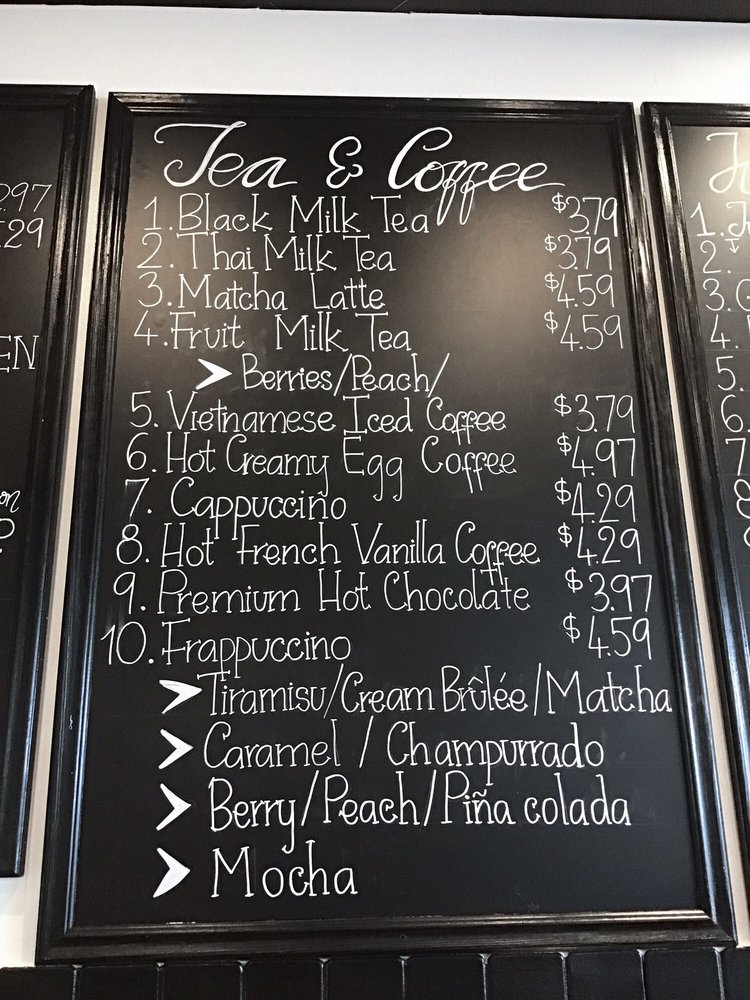 Tea & Coffee
1. Black Milk Tea $3.79
2. Thai Milk Tea $3.79
3. Matcha Latte $4.59
4. Fruit Milk Tea $4.59
➤ Berries/Peach/
5. Vietnamese Iced Coffee $3.79
6. Hot Creamy Egg Coffee $4.97
7. Cappuccino $4.29
8. Hot French Vanilla Coffee $4.29
9. Premium Hot Chocolate $3.97
10. Frappuccino $4.59
➤ Tiramisu/Cream Brûlée/Matcha
➤ Caramel / Champurrado
➤ Berry/Peach/Piña colada
➤ Mocha
.97
.29
EN
on
1.
2.
3.
4.
5.
6.
7
8